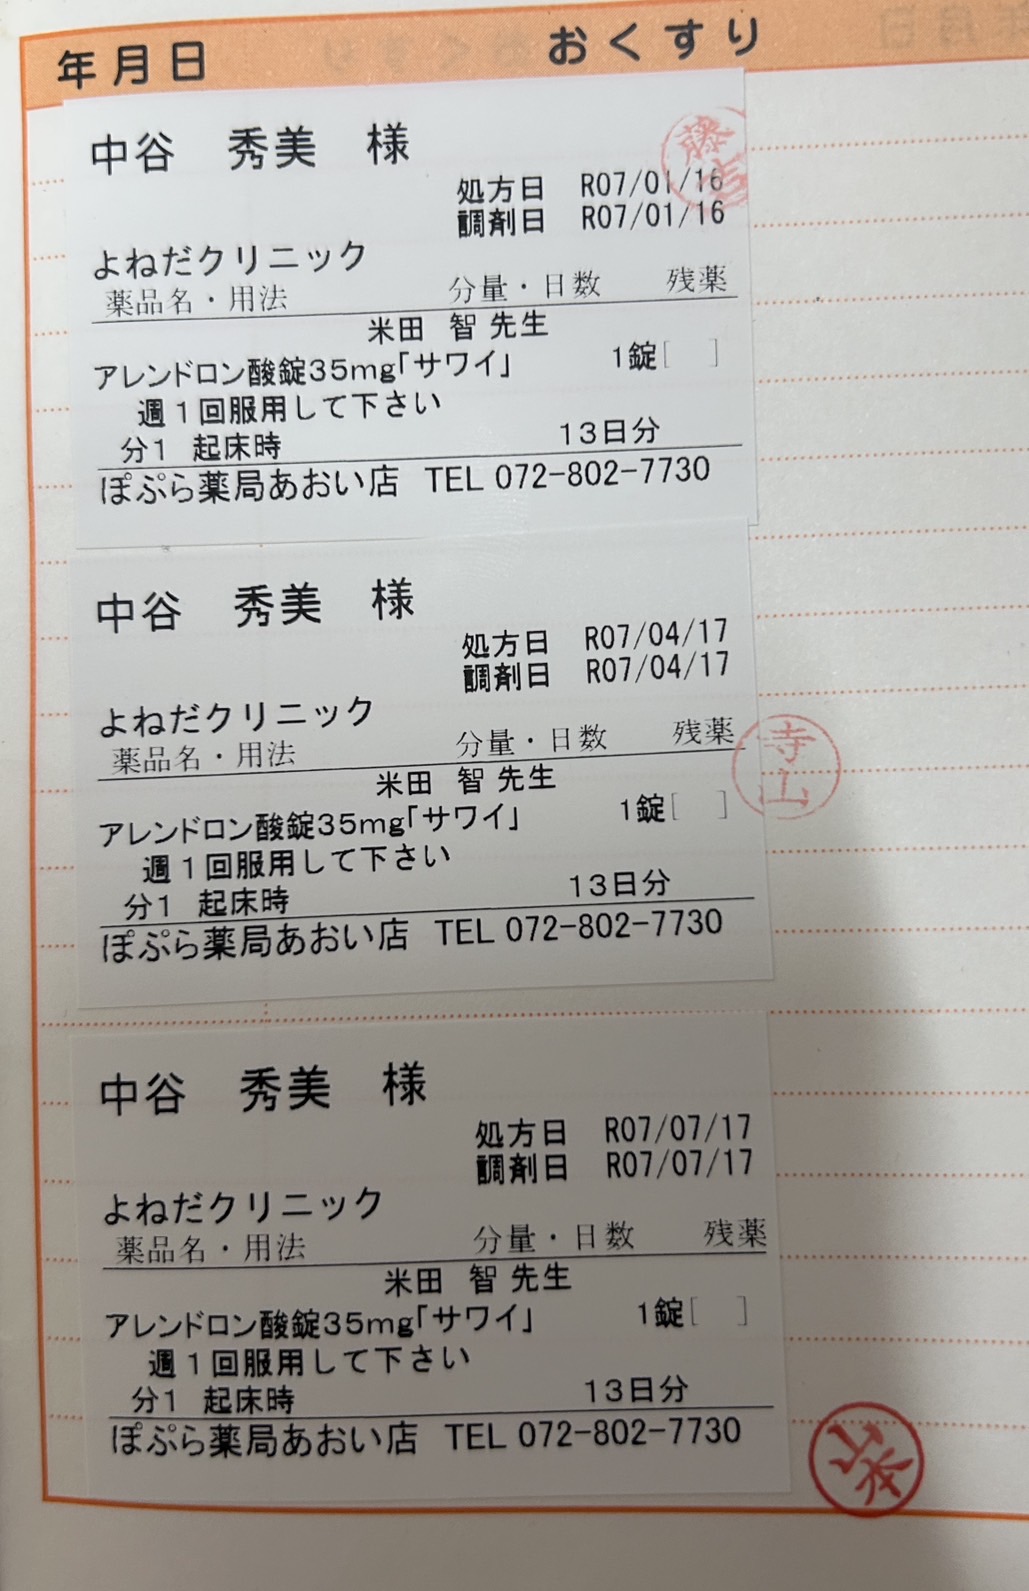 年月日 おくすり
中谷 秀美 様
処方日 R07/01/16
調剤日 R07/01/16
よねだクリニック
薬品名・用法 分量・日数 残薬
米田 智 先生
アレンドロン酸錠35mg「サワイ」 1錠[ ]
週1回服用して下さい
分1 起床時 13日分
ぽぷら薬局あおい店 TEL 072-802-7730
中谷 秀美 様
処方日 R07/04/17
調剤日 R07/04/17
よねだクリニック
薬品名・用法 分量・日数 残薬
寺山
米田 智 先生
アレンドロン酸錠35mg「サワイ」 1錠[ ]
週1回服用して下さい
分1 起床時 13日分
ぽぷら薬局あおい店 TEL 072-802-7730
中谷 秀美 様
処方日 R07/07/17
調剤日 R07/07/17
よねだクリニック
薬品名・用法 分量・日数 残薬
米田 智 先生
アレンドロン酸錠35mg「サワイ」 1錠[ ]
週1回服用して下さい
分1 起床時 13日分
ぽぷら薬局あおい店 TEL 072-802-7730
山本